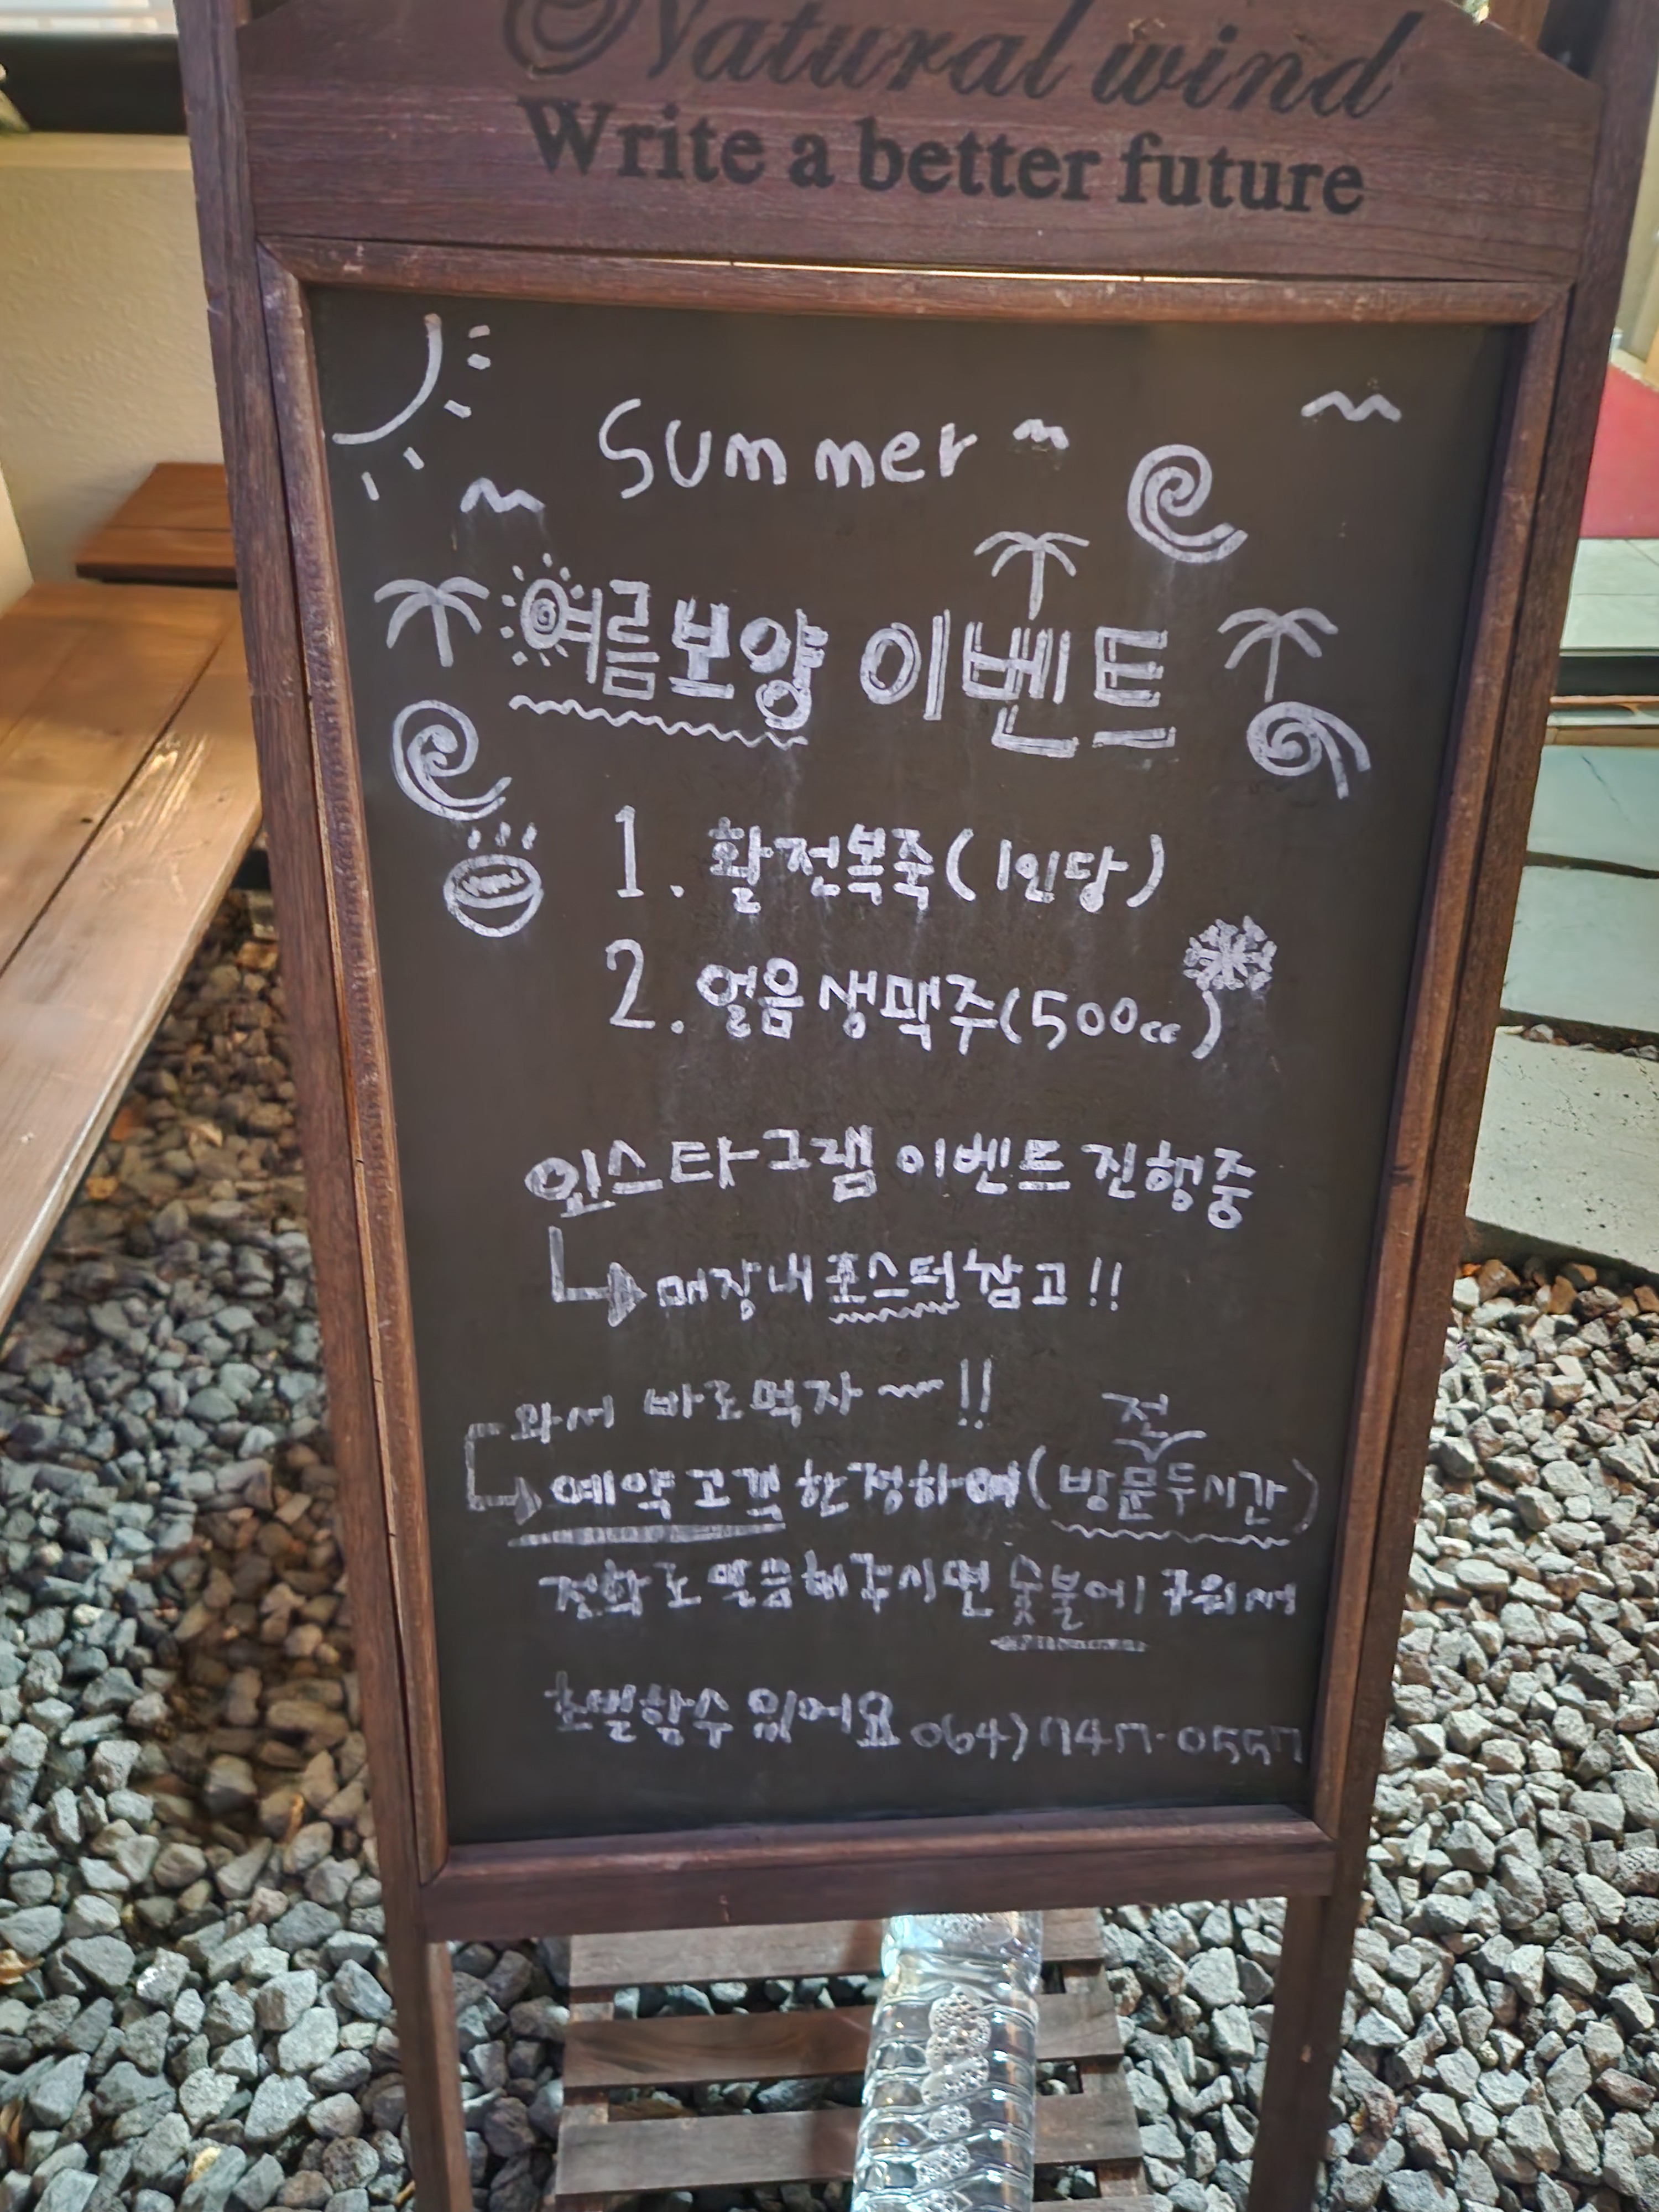 Natural wind
Write a better future
Summer ~
여름보양 이벤트
1. 활전복죽(1인당)
2. 얼음생맥주(500cc)
인스타그램 이벤트 진행중
매장내 포스터 참고!!
와서 바로먹자 ~!!
예약고객 한정하여(방문두시간전)
전화로 말씀해주시면 숯불에 구워서
초벌할수 있어요 064)747-0557